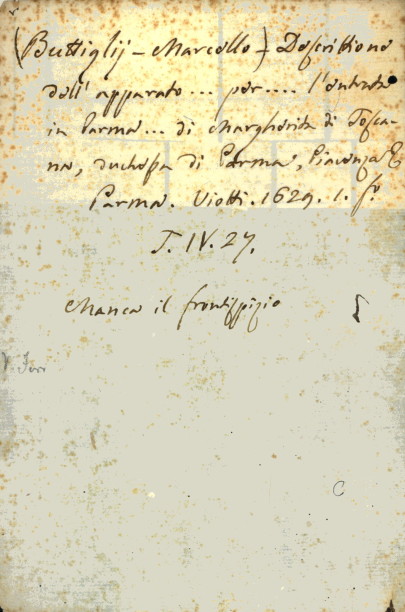 (Buttiglij - Marcello) - Descrittione
dell' apparato ... per .... l'entrata
in Parma ... di Margherita di Tosca-
na, duchessa di Parma, Piacenza &
Parma. Viotti. 1629. 1. fº.
T. IV. 27.
Manca il frontispizio
C